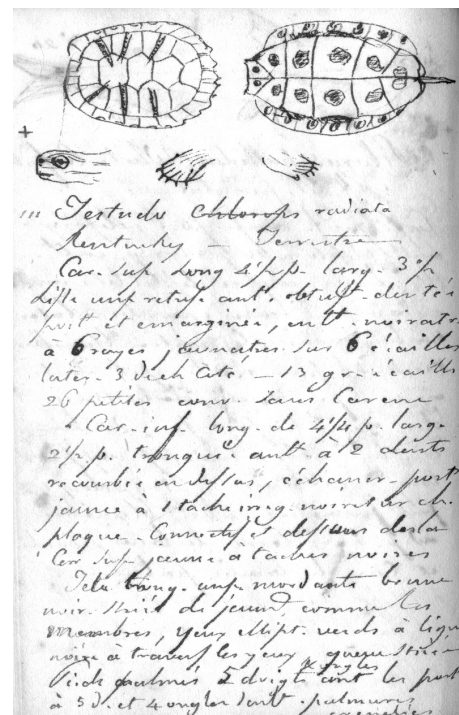 111 Testudo chlorops radiata
Kentucky — Terrestre
Car. sup. long 4½ p. larg. 3½ p
retuse ant. obtus. dentés
post. et emarginée, noiratre
à 6 rayes jaunatres sur 6 écailles
later. 3 de ch. coté — 13 gr. écailles
26 petites conv. sans carene
Car. inf. long. de 4¼ p. larg.
2½ p. tronquée ant. à 2 dents
recourbée en dessus, échancr. post
jaune à 1 tache irreg. noire sur ch.
plaque. Connectif et dessous de la
Car sup. jaune à taches noires
Tete mordante brune
noir. striée de jaune, comme les
membres, yeux ellipt. verds à ligne
noire à travers les yeux queue striée
Pieds palmés 5 doigts ongles ant. les post
à 5 d. et 4 ongles palmures